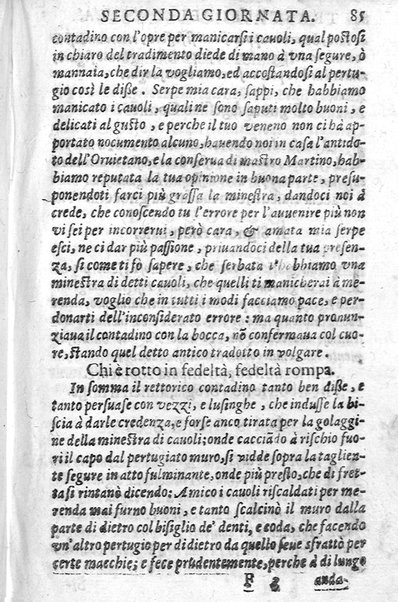 SECONDA GIORNATA. 85
contadino con l'opre per manicarsi i cauoli, qual postosi
in chiaro del tradimento diede di mano à vna segure, ò
mannaia, che dir la vogliamo, ed accostandosi al pertu-
gio così le disse. Serpe mia cara, sappi, che habbiamo
manicato i cauoli, quali ne sono saputi molto buoni, e
delicati al gusto, e perche il tuo veneno non ci hà ap-
portato nocumento alcuno, hauendo noi in casa l'antido-
to dell'Oruietano, e la conserua di mastro Martino, hab-
biamo reputata la tua opinione in buona parte, presu-
ponendoti farci più grassa la minestra, dandoci noi à
crede, che conoscendo tu l'errore per l'auuenire più non
vi sei per incorrerui, però cara, & amata mia serpe
esci, ne ci dar più passione, priuandoci della tua presen-
za, si come ti fo sapere, che serbata t'habbiamo vna
minestra di detti cauoli, che quelli ti manicherai à me-
renda, voglio che in tutti i modi facciamo pace, e per-
donarti dell'inconsiderato errore: ma quanto pronun-
ziaua il contadino con la bocca, nõ confermaua col cuo-
re, stando quel detto antico tradotto in volgare.
Chi è rotto in fedeltà, fedeltà rompa.
In somma il rettorico contadino tanto ben disse, e
tanto persuase con vezzi, e lusinghe, che indusse la bi-
scia à darle credenza, e forse anco tirata per la golaggi-
ne della minestra di cauoli; onde cacciãdo à rischio fuo-
ri il capo dal pertugiato muro, si vidde sopra la taglien-
te segure in atto fulminante, onde più presto, che di fret-
ta si rintanò dicendo: Amico i cauoli riscaldati per me-
renda mai furno buoni, e tanto scalcinò il muro dalla
parte di dietro col bisiglio de' denti, e coda, che facendo
vn'altro pertugio per di dietro da quello feue sfrattò per
certe maechie; e fece prudentemente, perche à di lungo
F 3 anda-